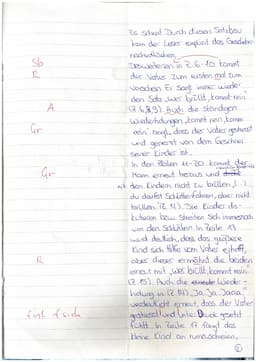 Es schneit Durch diesen Satzbau
kann der Leser das Geschehen
nachvollziehen.
Sb
Desweiteren in Z. 6-10 kommt
R
der Vater zum ersten mal zum
Vorschein. Er sagt immer wieder
den Satz „wer brüllt, kommt rein“
A
(Z. 6,8,9). Auch die ständigen
Wiederholungen „kommt rein, kommt
Gr
rein“ zeigt, dass der Vater gestresst
und genervt von dem Geschrei
seiner Kinder ist.
In den Zeilen 11-20 kommt der
Gr
Mann erneut heraus und
den Kindern, nicht zu brüllen, (...)
du darfst Schlittenfahren, aber nicht
brüllen“ (Z. 12). Die Kinder
streiten sich immernoch
um den Schlitten. In Zeile 13
wird deutlich, dass das größere
Kind sich Hilfe vom Vater erhofft,
aber dieser ermahnt die beiden
erneut mit „wer brüllt, kommt rein“
R
(Z. 15). Auch die Wieder-
holung in (Z. 17) „Ja, Ja, Jaaa“
verdeutlicht erneut, dass der Vater
gestresst und unter Druck gesetzt
fühlt. In Zeile 17 fängt das
kleine Kind an rumzuschreien,